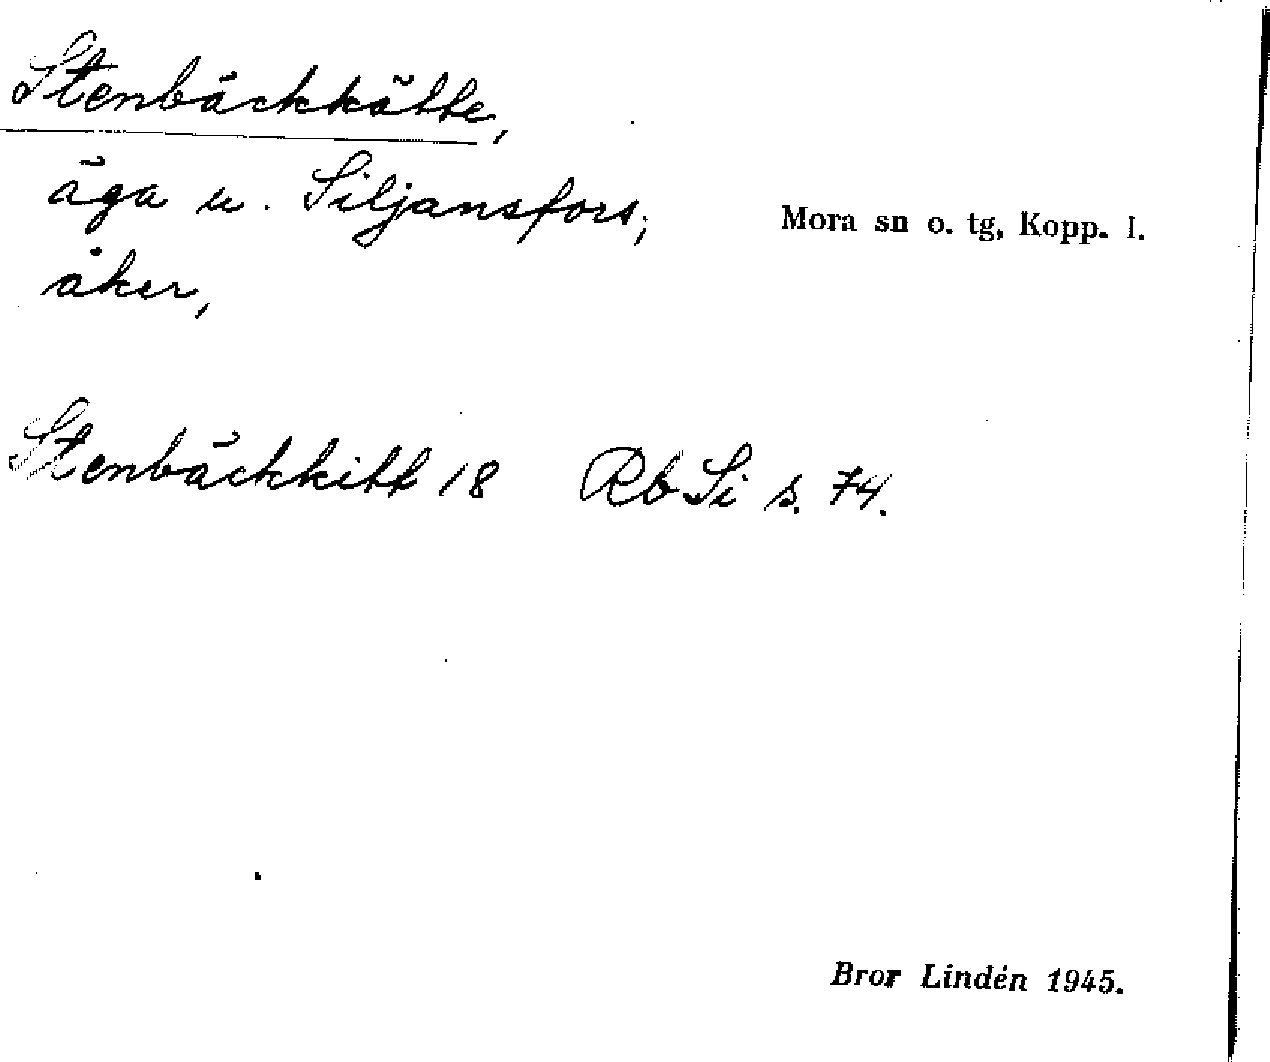 Stenbäckkätte,
äga u. Siljansfors;
Mora sn o. tg, Kopp. l.
åker,
Stenbäckkitt 18 Rb Si s. 74.
Bror Lindén 1945.